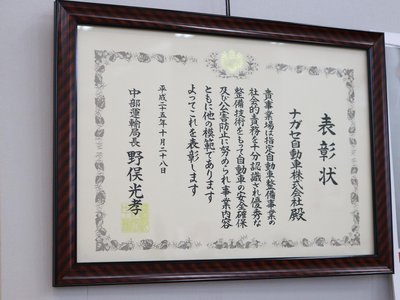 表彰状
ナガセ自動車株式会社殿
貴事業場は指定自動車整備事業の
社会的責務を十分認識され優秀な
整備技術をもって自動車の安全確保
及び公害防止に努められ事業内容
ともに他の模範であります
よってこれを表彰します
平成二十五年十月二十八日
中部運輸局長 野俣光孝